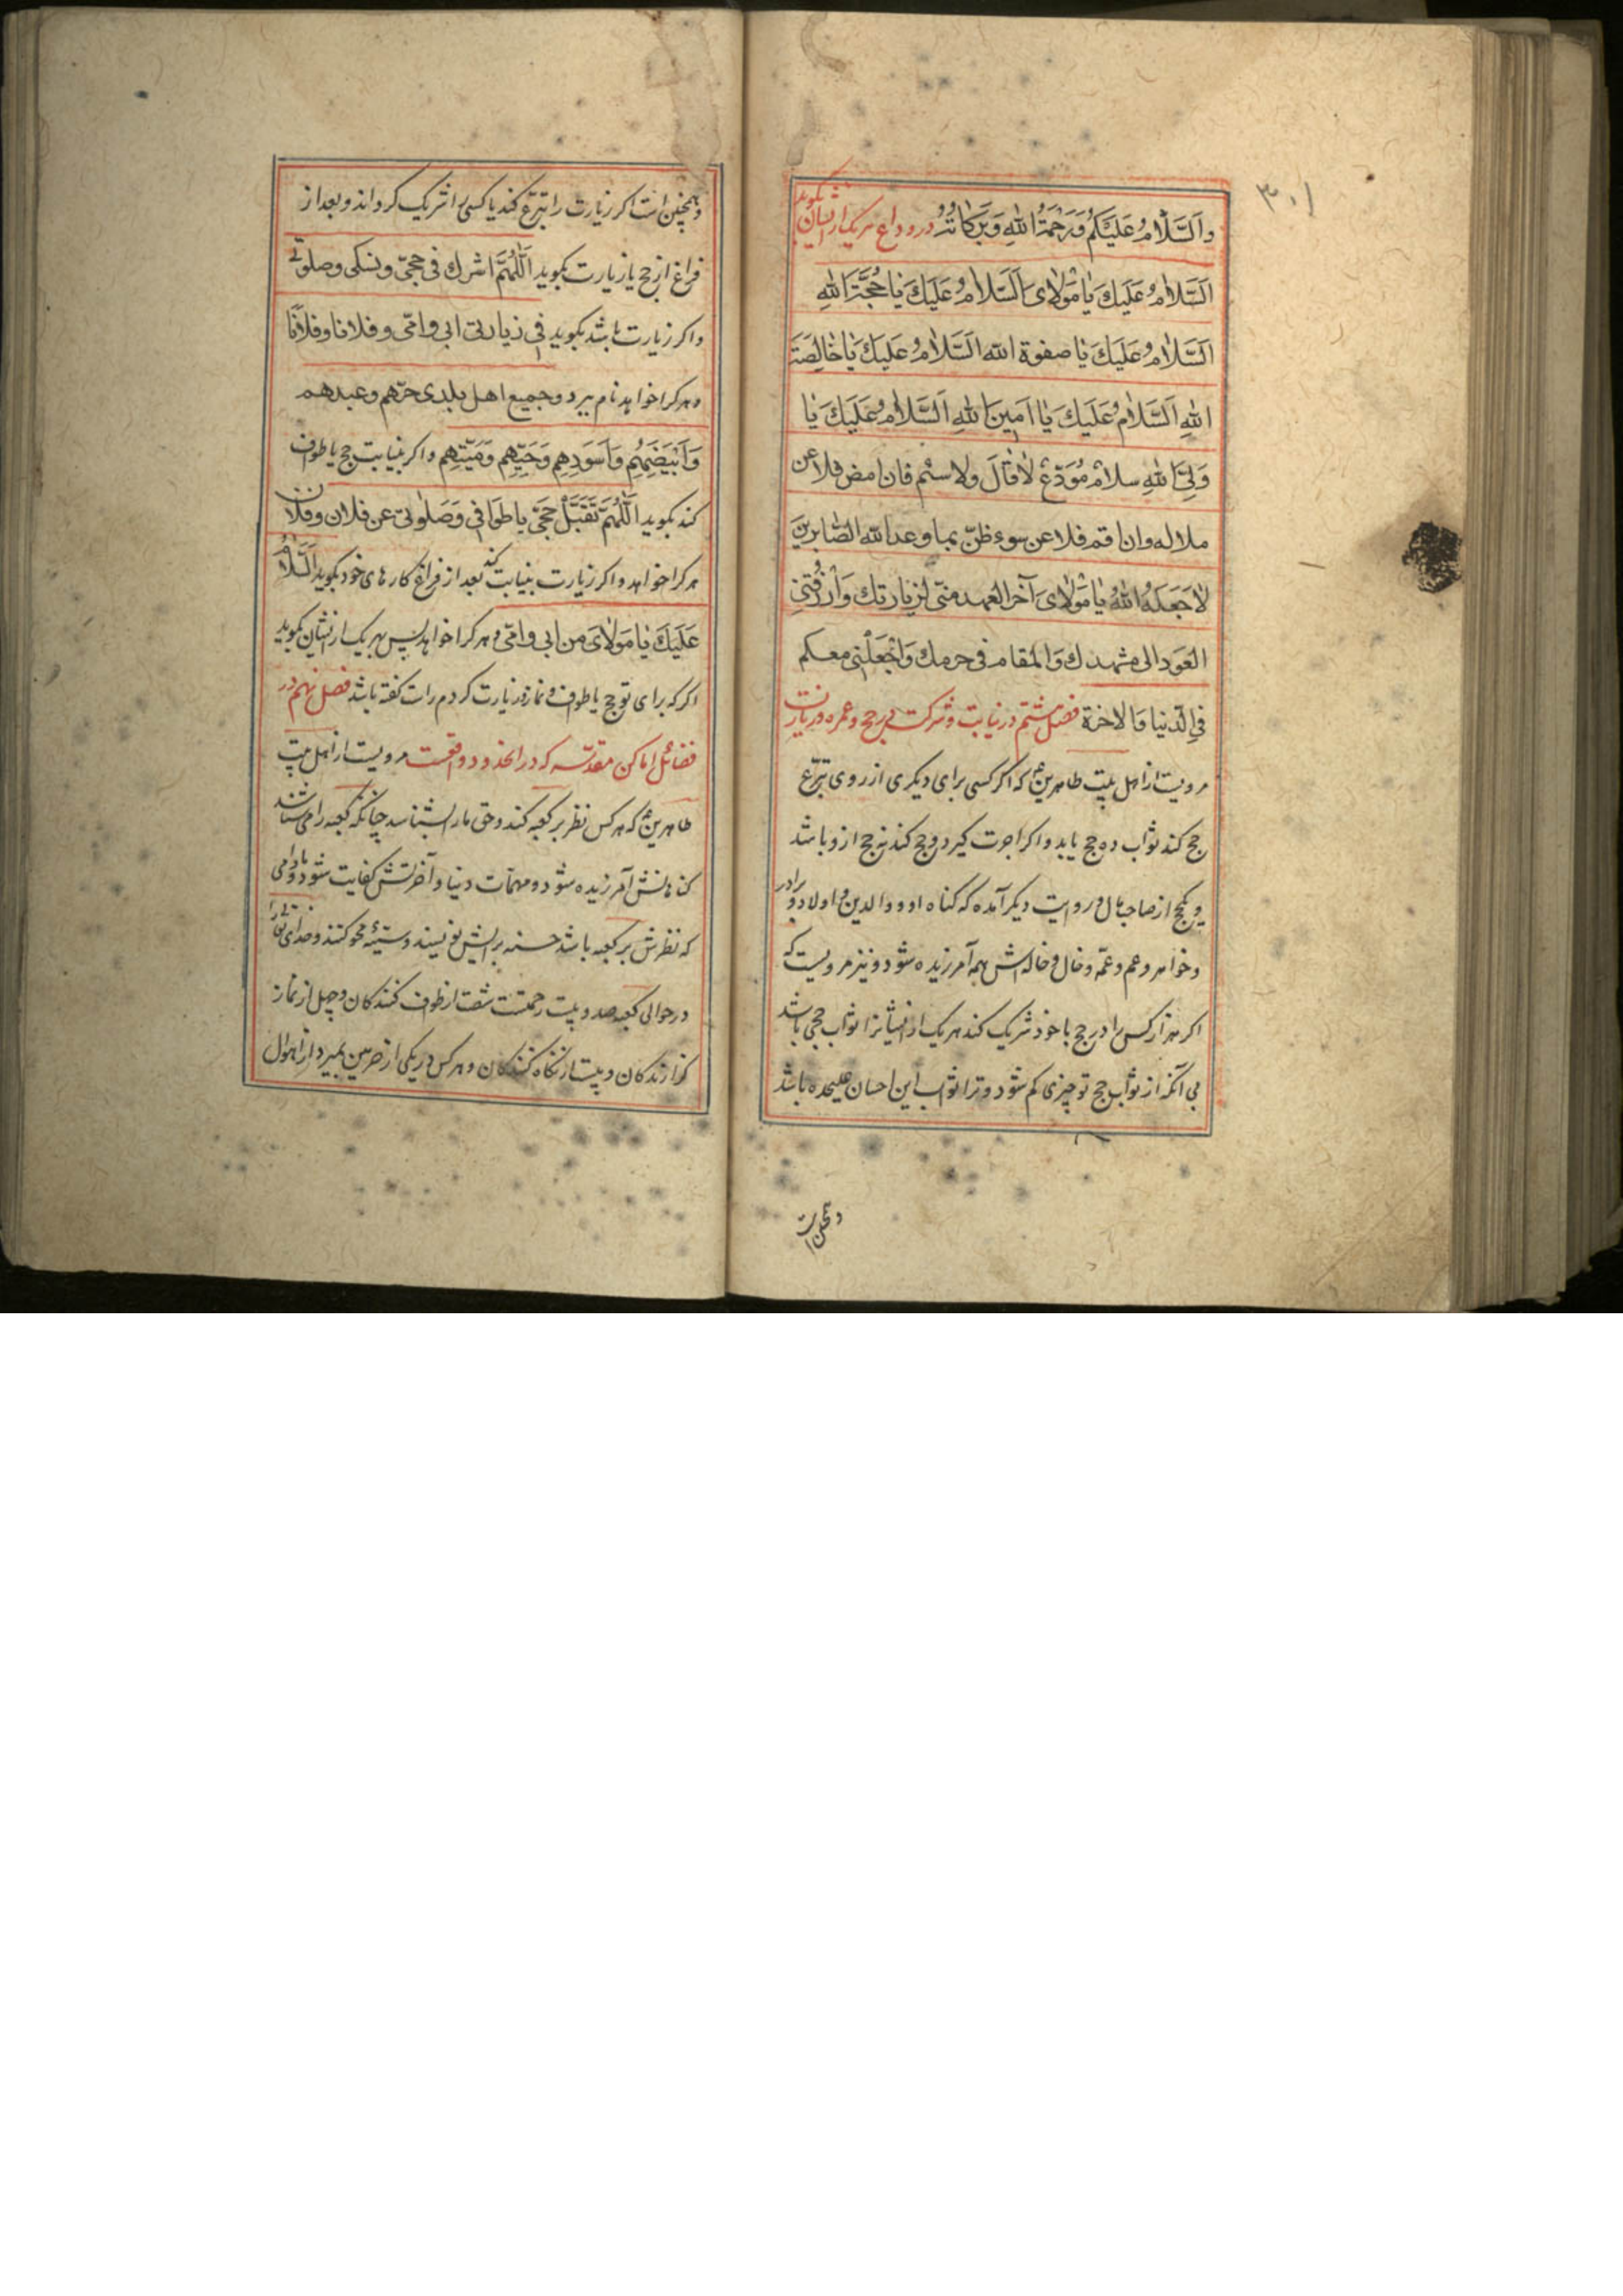 ۳۰۱
والسَّلامُ عَلَيْكُم وَرَحْمَةُ اللهِ وَبَرَكاتُهُ در وداع هر یک از ایشان بگوید
اَلسَّلامُ عَلَيْكَ يا مَوْلايَ اَلسَّلامُ عَلَيْكَ يا حُجَّةَ اللهِ
اَلسَّلامُ عَلَيْكَ يا صفوة الله السَّلامُ عَلَيكَ يا خالِصَةَ
اللهِ اَلسَّلامُ عَلَيكَ يا اَمينَ اللهِ اَلسَّلامُ عَلَيكَ يا
وَلِيَّ اللهِ سلامَ مُوَدِّعٍ لا قالَ ولا سئم فان امض فلا عن
ملالة وان اقم فلا عن سوء ظنّ بما وعد الله الصّابرينَ
لا جَعَلَهُ اللهُ يا مَوْلايَ آخر العهد منّي لزيارتك وَارْزُقْني
العَود الى مشهدك وَالمقام في حرمك وَاجْعَلْني معكم
فِي الدّنيا وَالاخرة فصل هشتم در نیابت و شرکت در حج و عمره و زیارت
مرویست از اهل بیت طاهرین ع که اگر کسی برای دیگری از روی تبرّع
حج کند ثواب ده حج یابد و اگر اجرت گیرد و حج کند نه حج ازو باشد
و یکحج از صاحب مال و در روایت دیگر آمده که گناه او و والدین و اولاد و برادر
و خواهر و عم و عمّه و خال و خاله اش همه آمرزیده شود و نیز مرویست که
اگر هزار کس را در حج با خود شریک کند هر یک از ایشانرا ثواب حجی باشد
بی آنکه از ثواب حج تو چیزی کم شود و ترا ثواب این احسان علیحده باشد
و همچنین است
و همچنین است اگر زیارت را تبرّع کند یا کسی را شریک گرداند و بعد از
فراغ از حج یا زیارت بگوید اَللّهُمَّ اشرك في حجّي و نسكي وصلوتي
واگر زیارت باشد بگوید في زيارتي ابي و امّي و فلانا و فلانًا
وهر کرا خواهد نام ببرد وجميع اهل بلدي حرّهم وعبدهم
وَاَبْيَضِهِم وَاَسْوَدِهِم وَحَيِّهِم وَمَيِّتِهِم واگر بنیابت حج یا طواف
کند بگوید اَللّهُمَّ تَقَبَّلْ حَجّي يا طوَافي وَصَلوتي عن فلان و فلان
هر کرا خواهد و اگر زیارت بنیابت کند بعد از فراغ کارهای خود بگوید اَلسَّلامُ
عَلَيْكَ يا مَوْلايَ من ابي وامّي و هر کرا خواهد پس بهر یک از ایشان بگوید
اگر که برای تو حج یا طواف و نماز و زیارت کردم راست گفته باشد فصل نهم در
فضائل اماکن مقدّسه که در انحدود واقعست مرویست از اهل بیت
طاهرین ع که هر کس نظر بر کعبه کند و حق ما را بشناسد چنانکه کعبه را می شناسد
گناهانش آمرزیده شود و مهمّات دنیا و آخرتش کفایت شود و مادامی
که نظرش بر کعبه باشد حسنه برایش نویسند و سیّئه محو کنند و خدای تعالی را
در حوالی کعبه صد و بیست رحمتست شصت از طواف کنندگان و چهل از نماز
گزارندگان و بیست از نگاه کنندگان و هر کس در یکی از حرمین بمیرد از اهوال